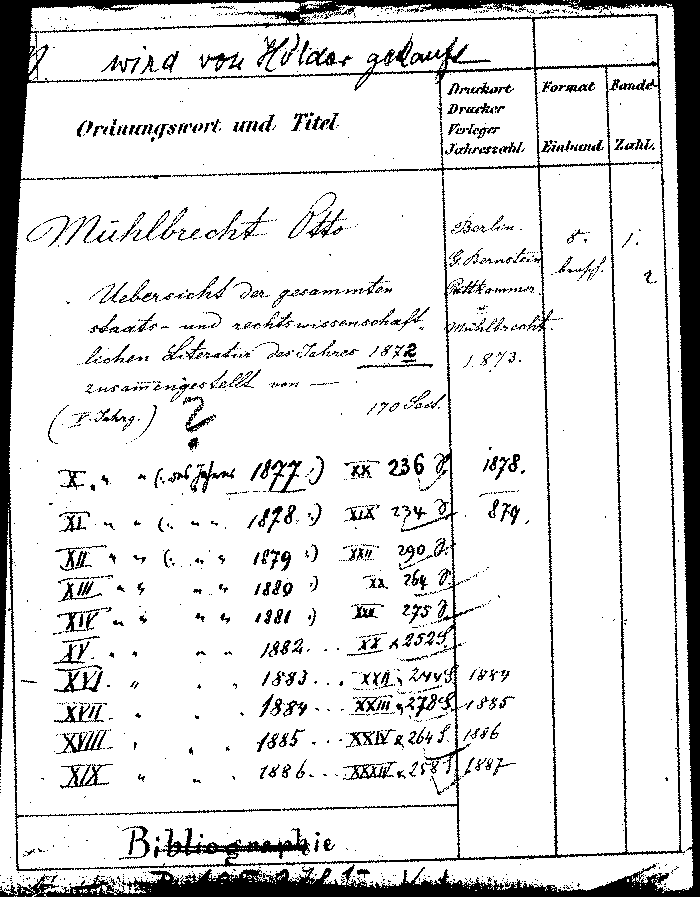 wird von Hölder gekauft
Ordnungswort und Titel
Druckort
Drucker
Verleger
Jahreszahl
Format
Einband
Bande-
Zahl.
Mühlbrecht Otto
Uebersicht der gesammten
staats- und rechtswissenschaft-
lichen Literatur des Jahres 1872
zusammengestellt von —
(V. Jahrg.) ?
170 Seit.
Berlin.
G. Bernstein
Puttkammer
u
Mühlbrecht.
1873.
8.
1.
2
X. " " (: des Jahres 1877 :) XX 236 S. 1878.
XI " " (: " " 1878 :) XIX 234 S. 879.
XII " " (: " " 1879 :) XXII 290 S.
XIII " " " " 1880 :) XX 264 S.
XIV " " " " 1881 :) XXI 275 S.
XV " " " 1882... XX & 252 S.
XVI " " 1883... XXII & 244 S. 1884
XVII " " 1884... XXIII & 278 S. 1885
XVIII " " " 1885... XXIV & 264 S 1886
XIX " " " 1886... XXXIV & 258 S 1887
Bibliographie